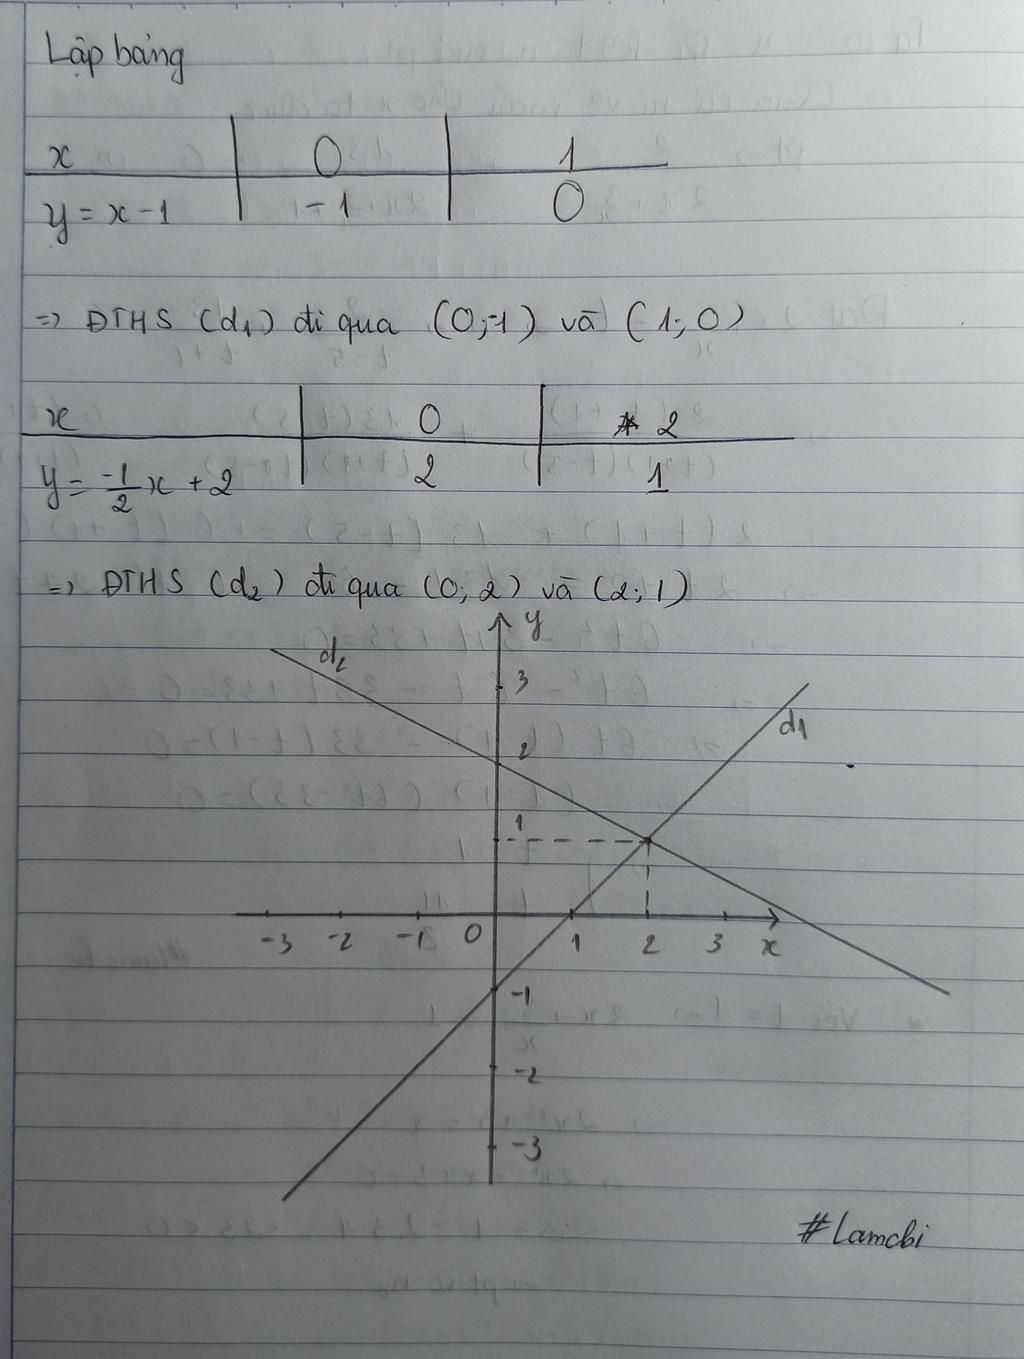 Lập bảng
x 0 1
y = x - 1 -1 0
=> ĐTHS (d1) đi qua (0;-1) và (1;0)
x 0 2
y = -1/2 x + 2 2 1
=> ĐTHS (d2) đi qua (0;2) và (2;1)
y
d2
3
d1
2
1
-3 -2 -1 0 1 2 3 x
-1
-2
-3
#Lamchi